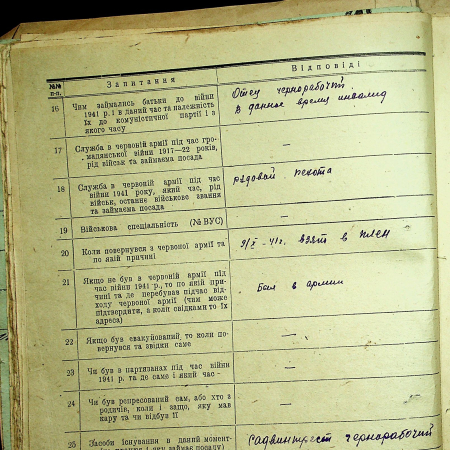 №№ п-п.
Запитання
Відповіді
16
Чим займались батьки до війни
1941 р. і в даний час та належність
їх до комуністичної партії і з
якого часу
Отец чернорабочий
В данное время инвалид
17
Служба в червоній армії під час гро-
мадянської війни 1917—22 років,
рід військ та займаєма посада
—
18
Служба в червоній армії під час
війни 1941 року, який час, рід
військ, останнє військове звання
та займаєма посада
рядовой пехота
19
Військова спеціальність (№ ВУС)
—
20
Коли повернувся з червоної армії та
по якій причині
9/X - 41г. взят в плен
21
Якщо не був в червоній армії під
час війни 1941 р., то по якій при-
чині та де перебував підчас від-
ходу червоної армії (чим може
підтвердити, а коли свідками то їх
адреса)
Был в армии
22
Якщо був евакуйований, то коли по-
вернувся та звідки саме
—
23
Чи був в партизанах під час війни
1941 р. та де саме і який час -
—
24
Чи був репресований сам, або хто з
родичів, коли і защо, яку мав
кару та чи відбув її
—
25
Засоби існування в даний момент-
чернорабочий